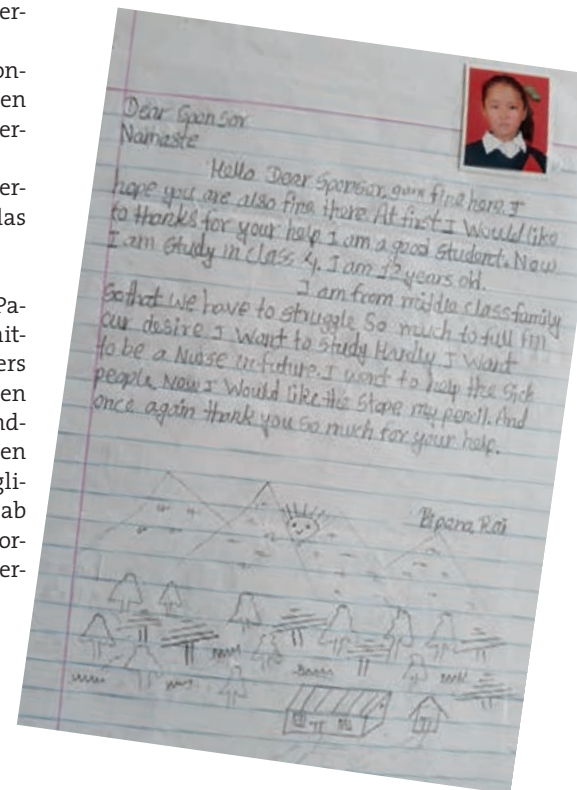 er-
on-
en
er-
er-
las
Pa-
nit-
ers
en
nd-
en
gli-
ab
or-
er-
Dear Sponsor
Namaste
Hello Dear Sponsor, fine here. I
hope you are also fine there At first I Would like
to thanks for your help I am a good Student. Now
I am Study in class 4. I am years old.
I am from middle class family
So that we have to struggle So much to full fim
our desire I Want to Study Hardly I Want
to be a Nurse in future. I want to help the Sick
people, Now I Would like the Stope my pencil. And
once again thank you so much for your help.
Bipana Rai